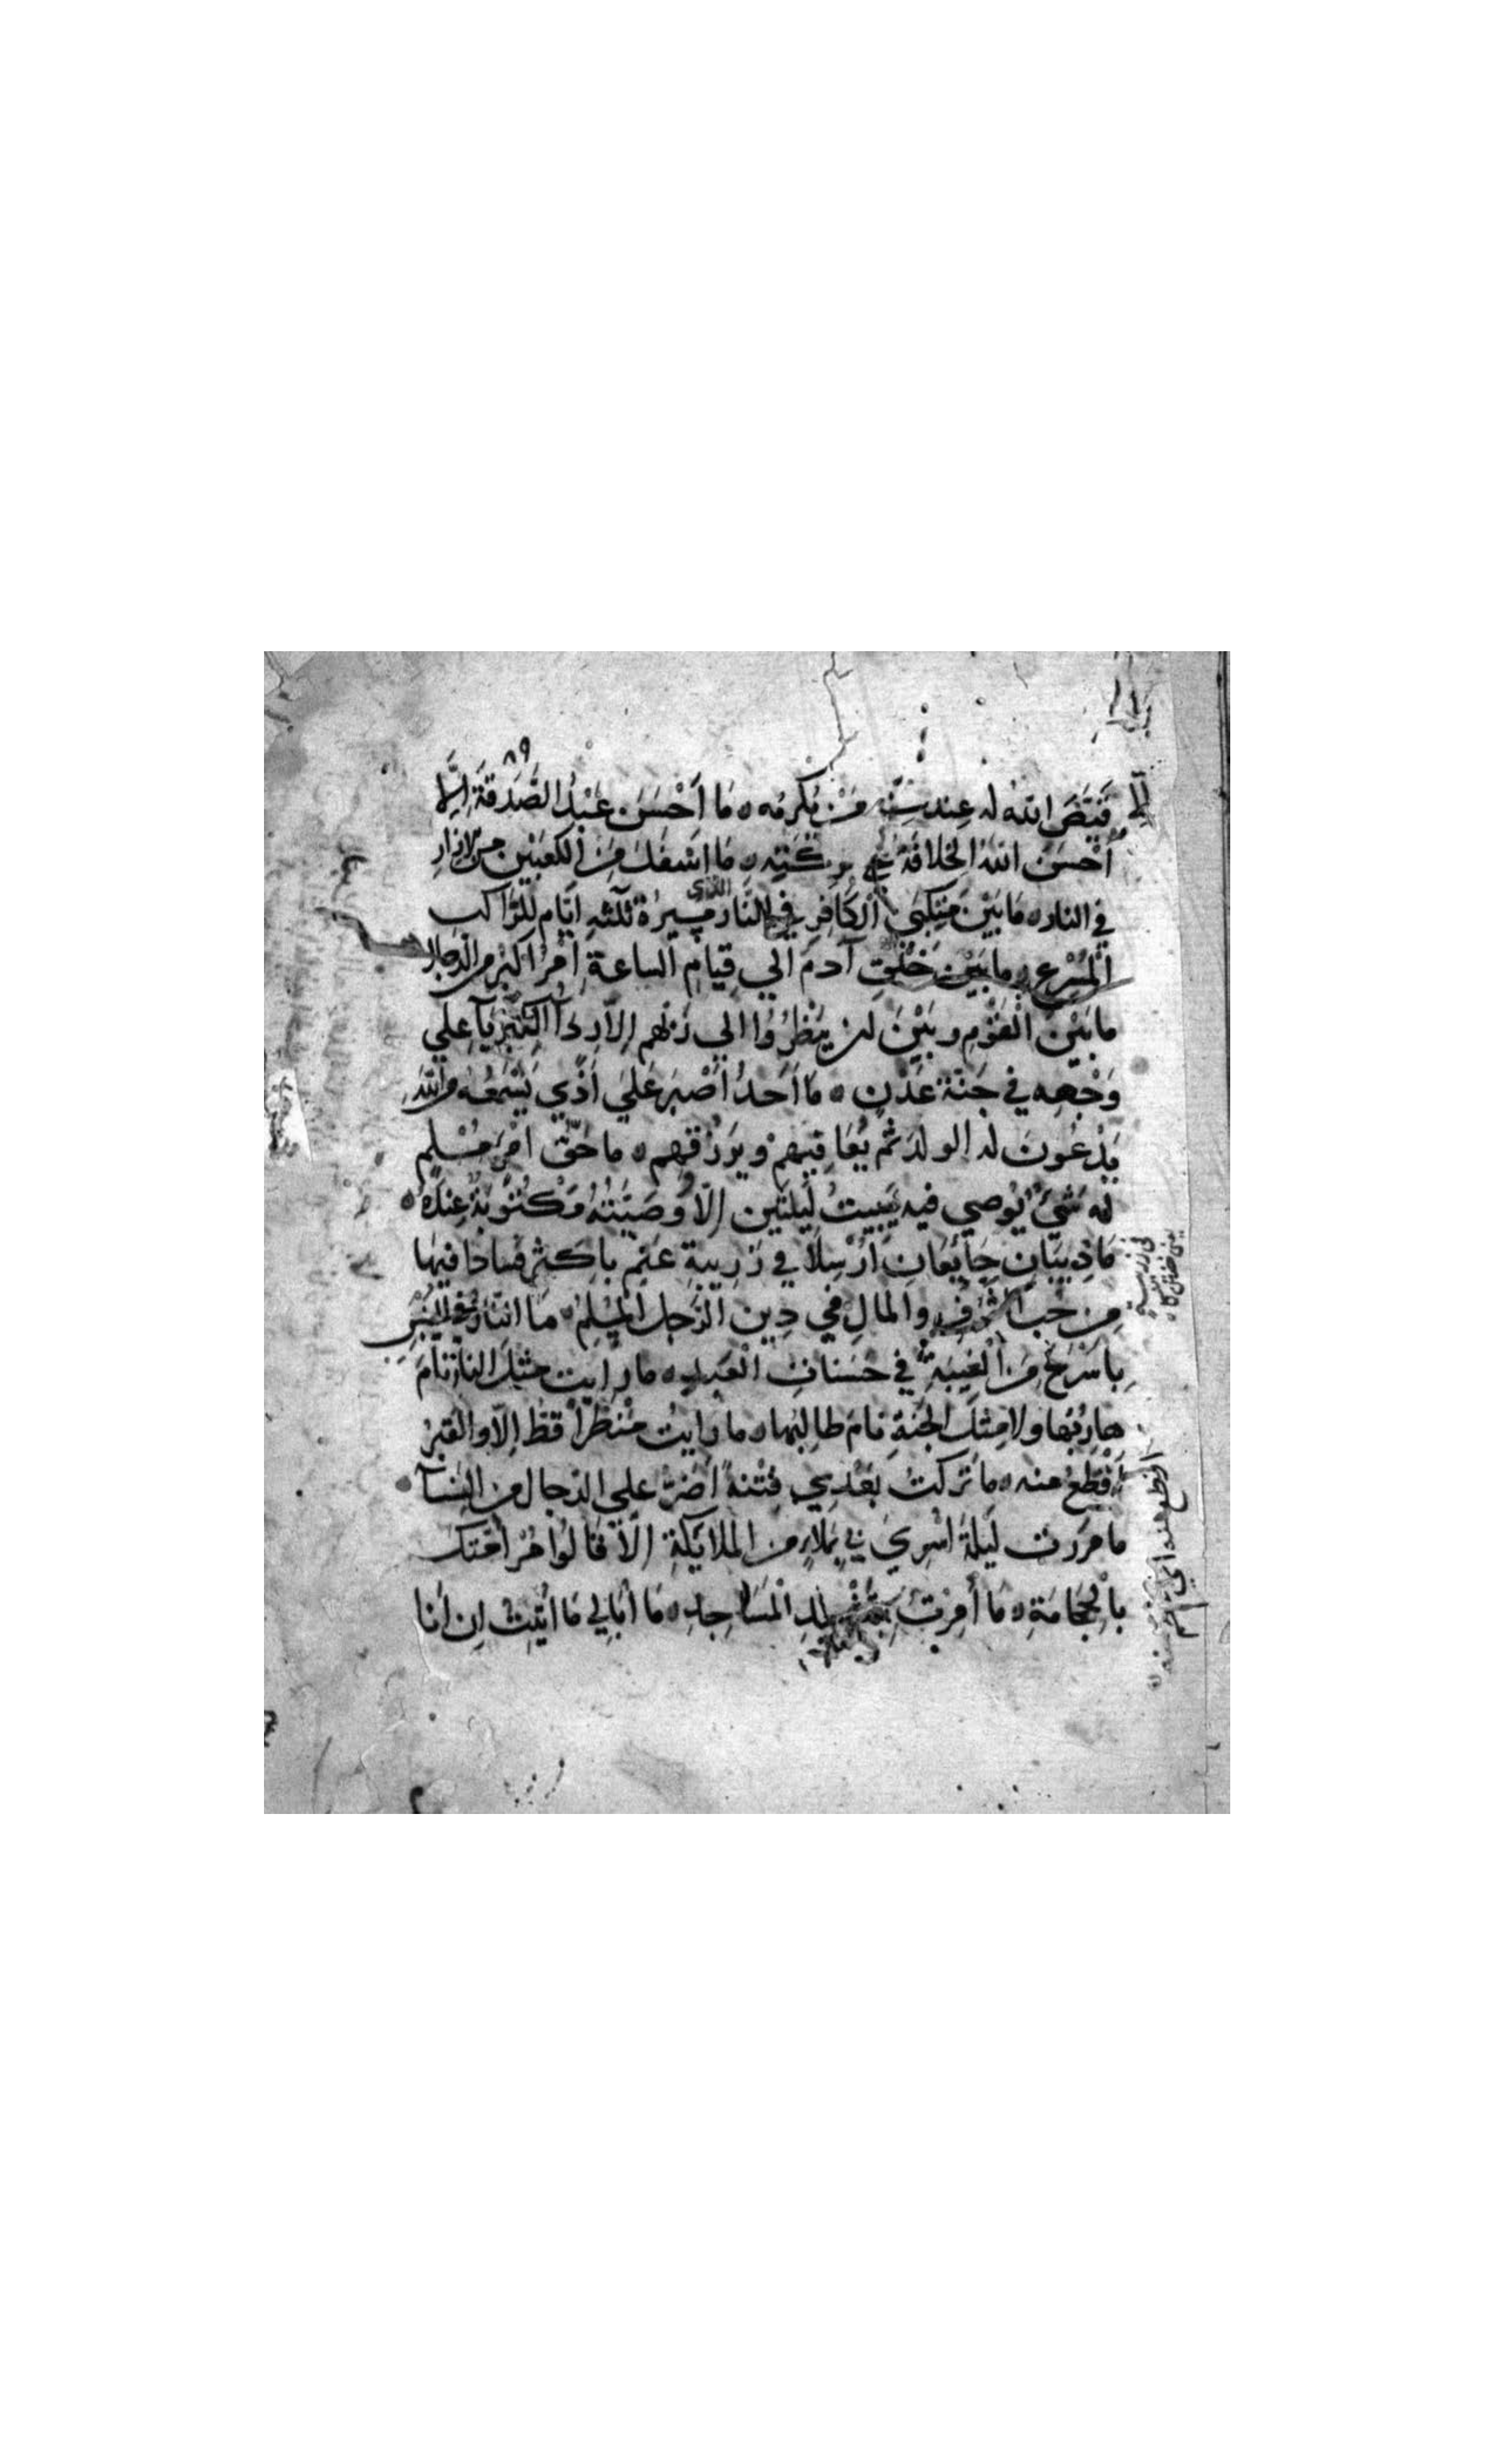 ٨٩
فَيَّضَ الله له عِند سِنِّه مَنْ يُكرمُه ٥ مَا أَحْسَنَ عَبْدُ الصَّدَقَةَ إِلَّا
أَحْسَنَ اللهُ الخِلافَةَ على تركته ٥ مَا اسفل مِنَ الكعبَيْنِ من الازار
في النار ٥ مَا بَيْنَ مَنكِبَي الكافِرِ في النَّار مسِيرةُ ثلثهِ ايَّام للرَّاكب
المُسْرعِ ٥ ما بَيْن خلْقِ آدمَ الي قِيامِ الساعة أمْرٌ اكبر من الدجال
ما بَيْنَ القَوْمِ وبَيْنَ أن ينظُرُوا الي ربهم إلاّ رِدَآ الكِبْرِيَآ علي
وَجْهِه في جَنَّة عَدْنٍ ٥ مَا أَحَدٌ أَصْبَر عَلَي أَذًي يَسْمَعُه من الله
يَدْعُونَ له الولدَ ثمّ يُعَافيهمْ ويَرْزقهم ٥ ما حَقّ امْرَءٍ مُسْلِم
له شَيْءٌ يُوصي فيه يَبِيتُ لَيلتَين إلّا وَصِيَّتُهُ مَكْتُوبَةٌ عِندَهُ ٥
مَا ذِيبَانِ جَايعَان أُرْسِلَا في زَرِيبةِ غنم باكثر فسادا فيها
مِن حُب الشرف والمالِ في دِين الرَّجل المُسلِم ٥ مَا النارُ في اليُبْسِ
بِاسْرَعَ مِنَ الغِيبَةِ في حَسنات العَبد ٥ ما رايت مثل النار نامَ
هاربُها ولا مثلَ الجنة نامَ طالبُها ٥ ما رايتُ منْظرًا قطّ الّا والقبرُ
أفْظَعُ منه ٥ ما تركتُ بَعْدِي فِتْنةً أضرّ علي الرجال من النسآ
ما مررت ليلة اسري بي بملاءٍ من الملايكة الّا قالوا مُرْ امتك
بالحجامَة ٥ مَا أُمِرْتُ بتشييد المساجد ٥ مَا أُبَالي مَا أتيتُ ان أنا